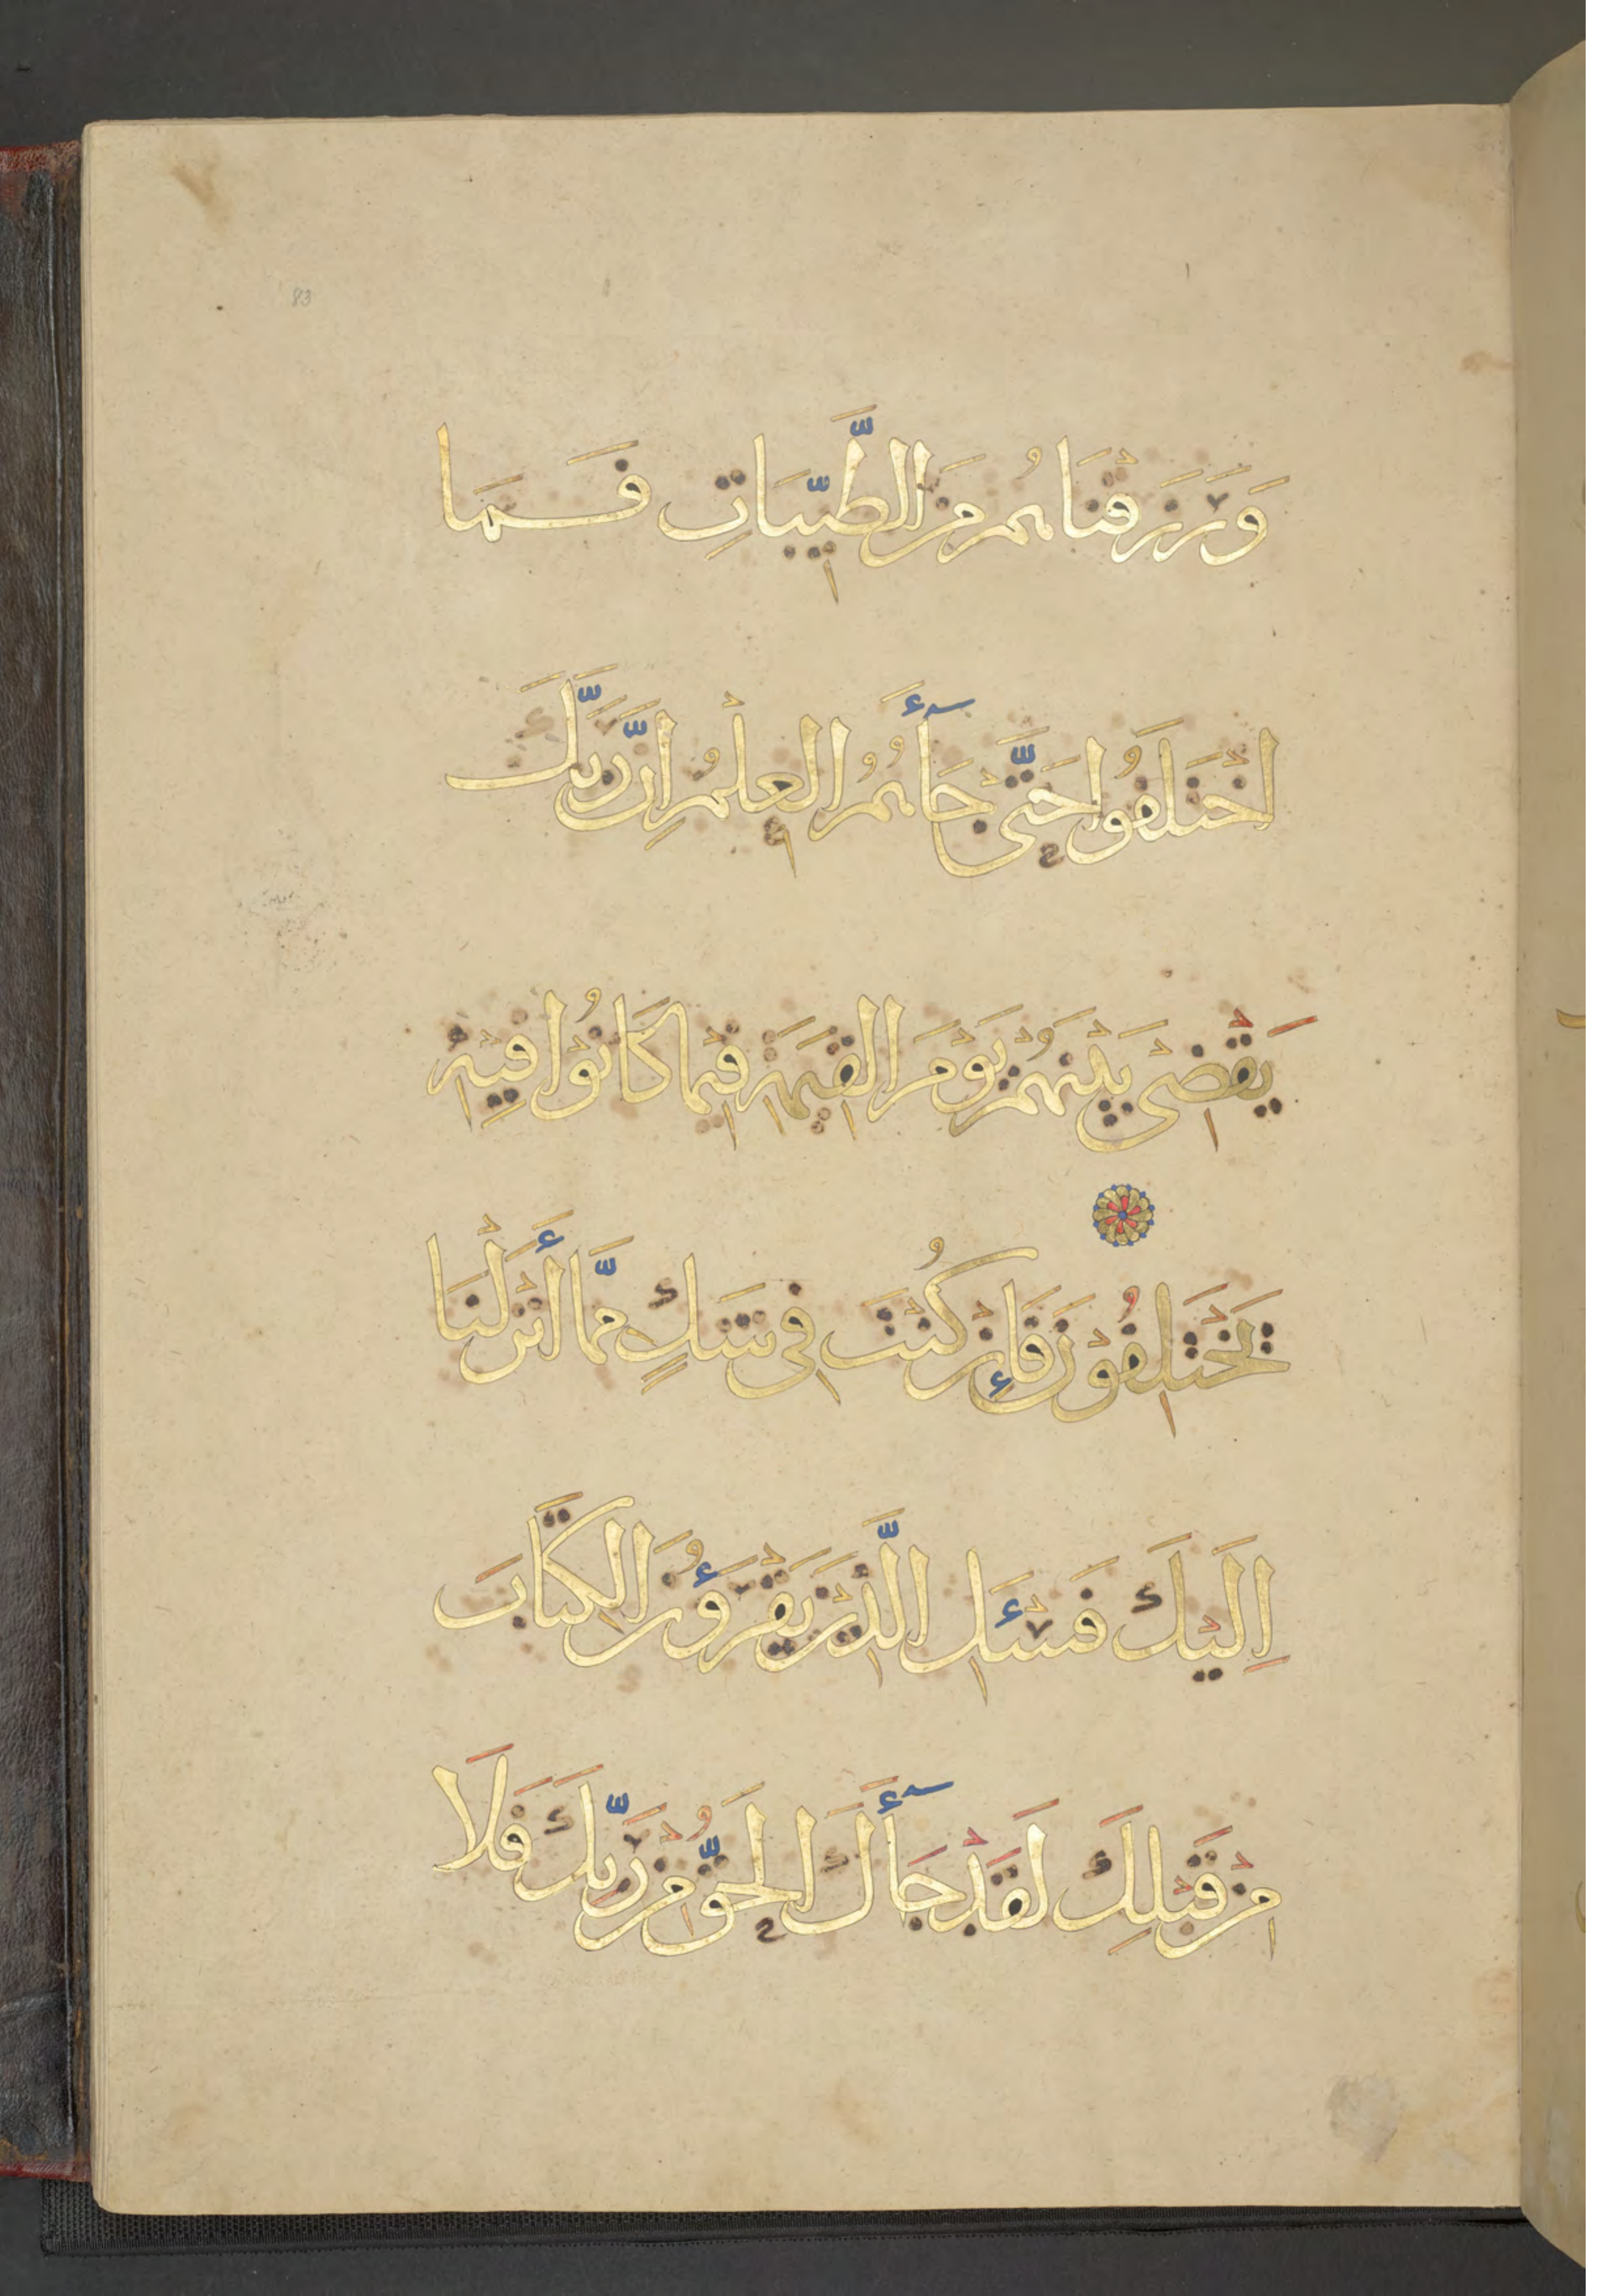 83
وَرَزَقْنَاهُم مِّنَ الطَّيِّبَاتِ فَمَا
اخْتَلَفُوا حَتَّىٰ جَآءَهُمُ الْعِلْمُ اِنَّ رَبَّكَ
يَقْضِىْ بَيْنَهُمْ يَوْمَ الْقِيٰمَةِ فِيْمَا كَانُوْا فِيْهِ
يَخْتَلِفُوْنَ فَإِن كُنْتَ فِى شَكٍّ مِّمَّا أَنْزَلْنَا
اِلَيْكَ فَسْئَلِ الَّذِيْنَ يَقْرَؤُنَ الْكِتَابَ
مِنْ قَبْلِكَ لَقَدْ جَآءَكَ الْحَقُّ مِنْ رَّبِّكَ فَلَا